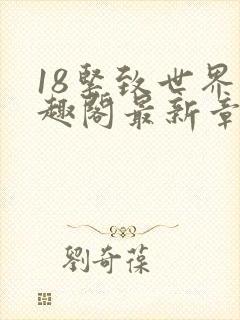 18堅致世界
趣閣最新章
劉奇葆